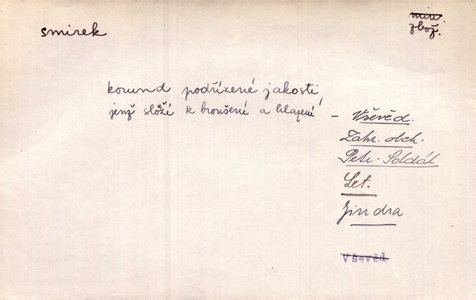 smirek
min.
zbož.
korund podřízené jakosti,
jenž slóžé k broušené a hlazení
– Vševěd.
Zahr. obch.
Petr - Soldát
Let.
Jindra
Vševěd